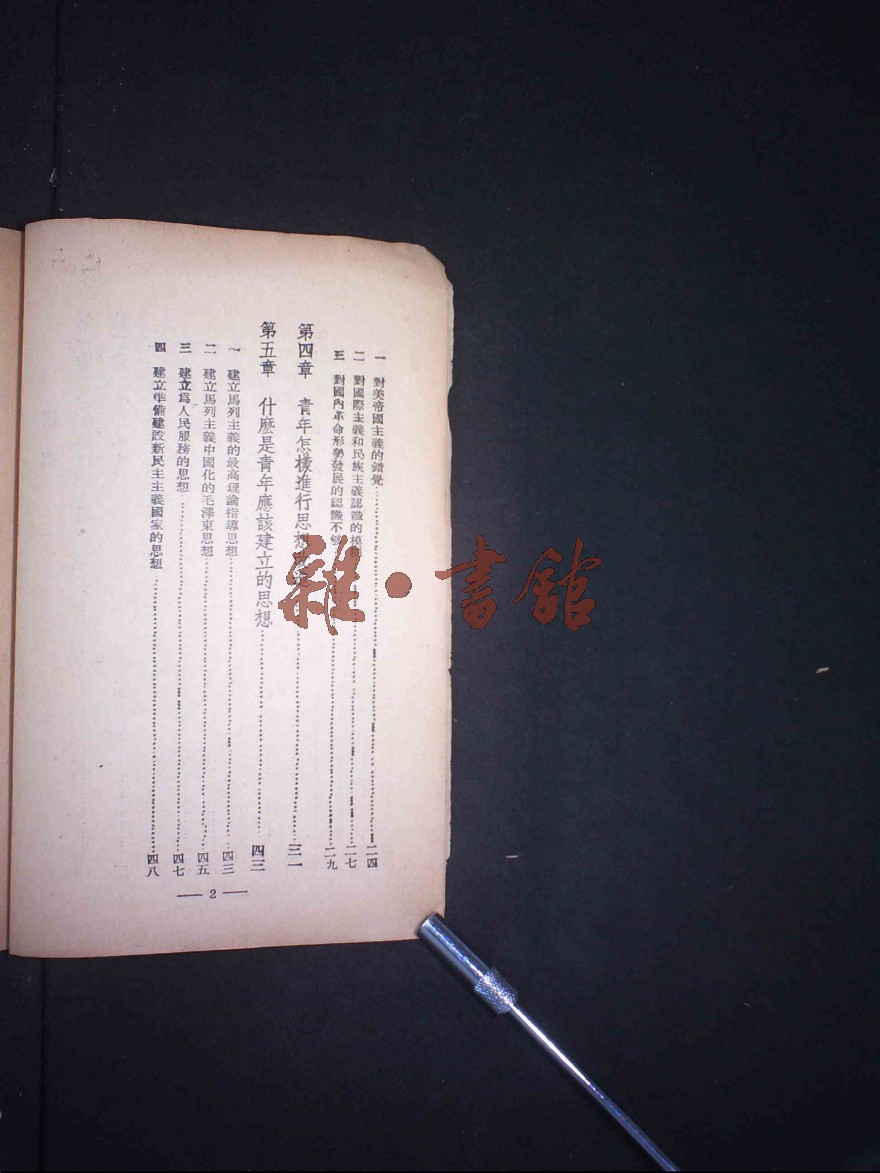 一 對美帝國主義的錯覺……二四
二 對國際主義和民族主義認識的模……二七
三 對國內革命形勢發展的認識不够……二九
第四章 青年怎樣進行思想……三一
第五章 什麽是青年應該建立的思想……四三
一 建立馬列主義的最高理論指導思想……四三
二 建立馬列主義中國化的毛澤東思想……四五
三 建立爲人民服務的思想……四七
四 建立準備建設新民主主義國家的思想……四八
— 2 —
雜·書館